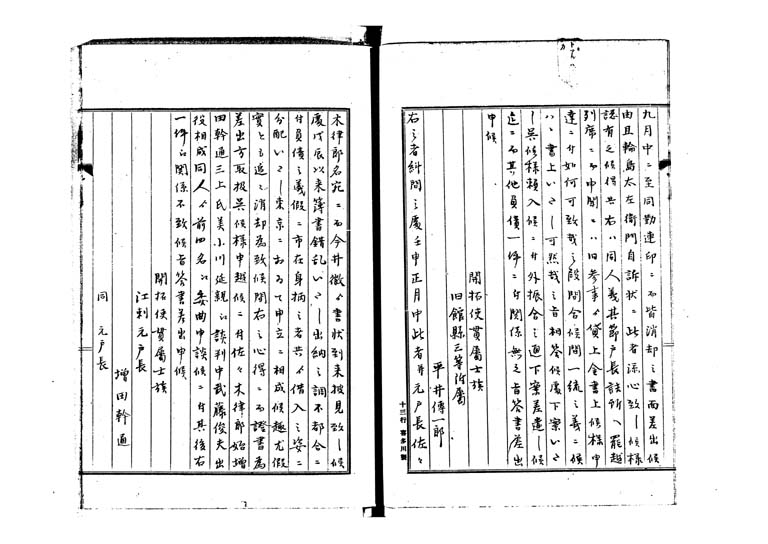 九月中ニ至同勤連印ニ而皆消却之書面差出候
由且輪島太左衛門自訴状ニ此者添心致シ候様
認有之候得共右ハ同人義其節戸長詰所ヘ罷越
列席ニ而申聞ニハ旧参事ヘ貸上金書上候様申
達ニ付如何可致哉之段問合候間一統之義ニ候
ハヽ書上いたし可然哉之旨相答候処下案いた
シ呉候様頼入候ニ付外振合之通下案差遣し候
迄ニ而其他負債一件ニ付関係無之旨答書差出
申候
開拓使貫属士族
旧館縣三等附属
平井傳一郎
右之者糾問之処壬申正月中此者并元戸長佐々
十三行 喜多川製
木律郎名宛ニ而今井徹ゟ書状到来披見致シ候
処戊辰以来簿書錯乱いたし出納之調不都合ニ
付負債之義假ニ市在身柄之者共ゟ借入之姿ニ
分配いたし東京ニおゐて申立ニ相成候趣尤假
實とも追而消却為致候間右之心得ニ而證書為
差出方取扱呉候様申越候ニ付佐々木律郎始増
田幹通三上氏美小川延親ヘ談判中武藤俊夫出
役相成同人ゟ前四名ヘ委曲申談候ニ付其後右
一件ヘ関係不致候旨答書差出申候
開拓使貫属士族
江刺元戸長
増田幹通
同 元戸長